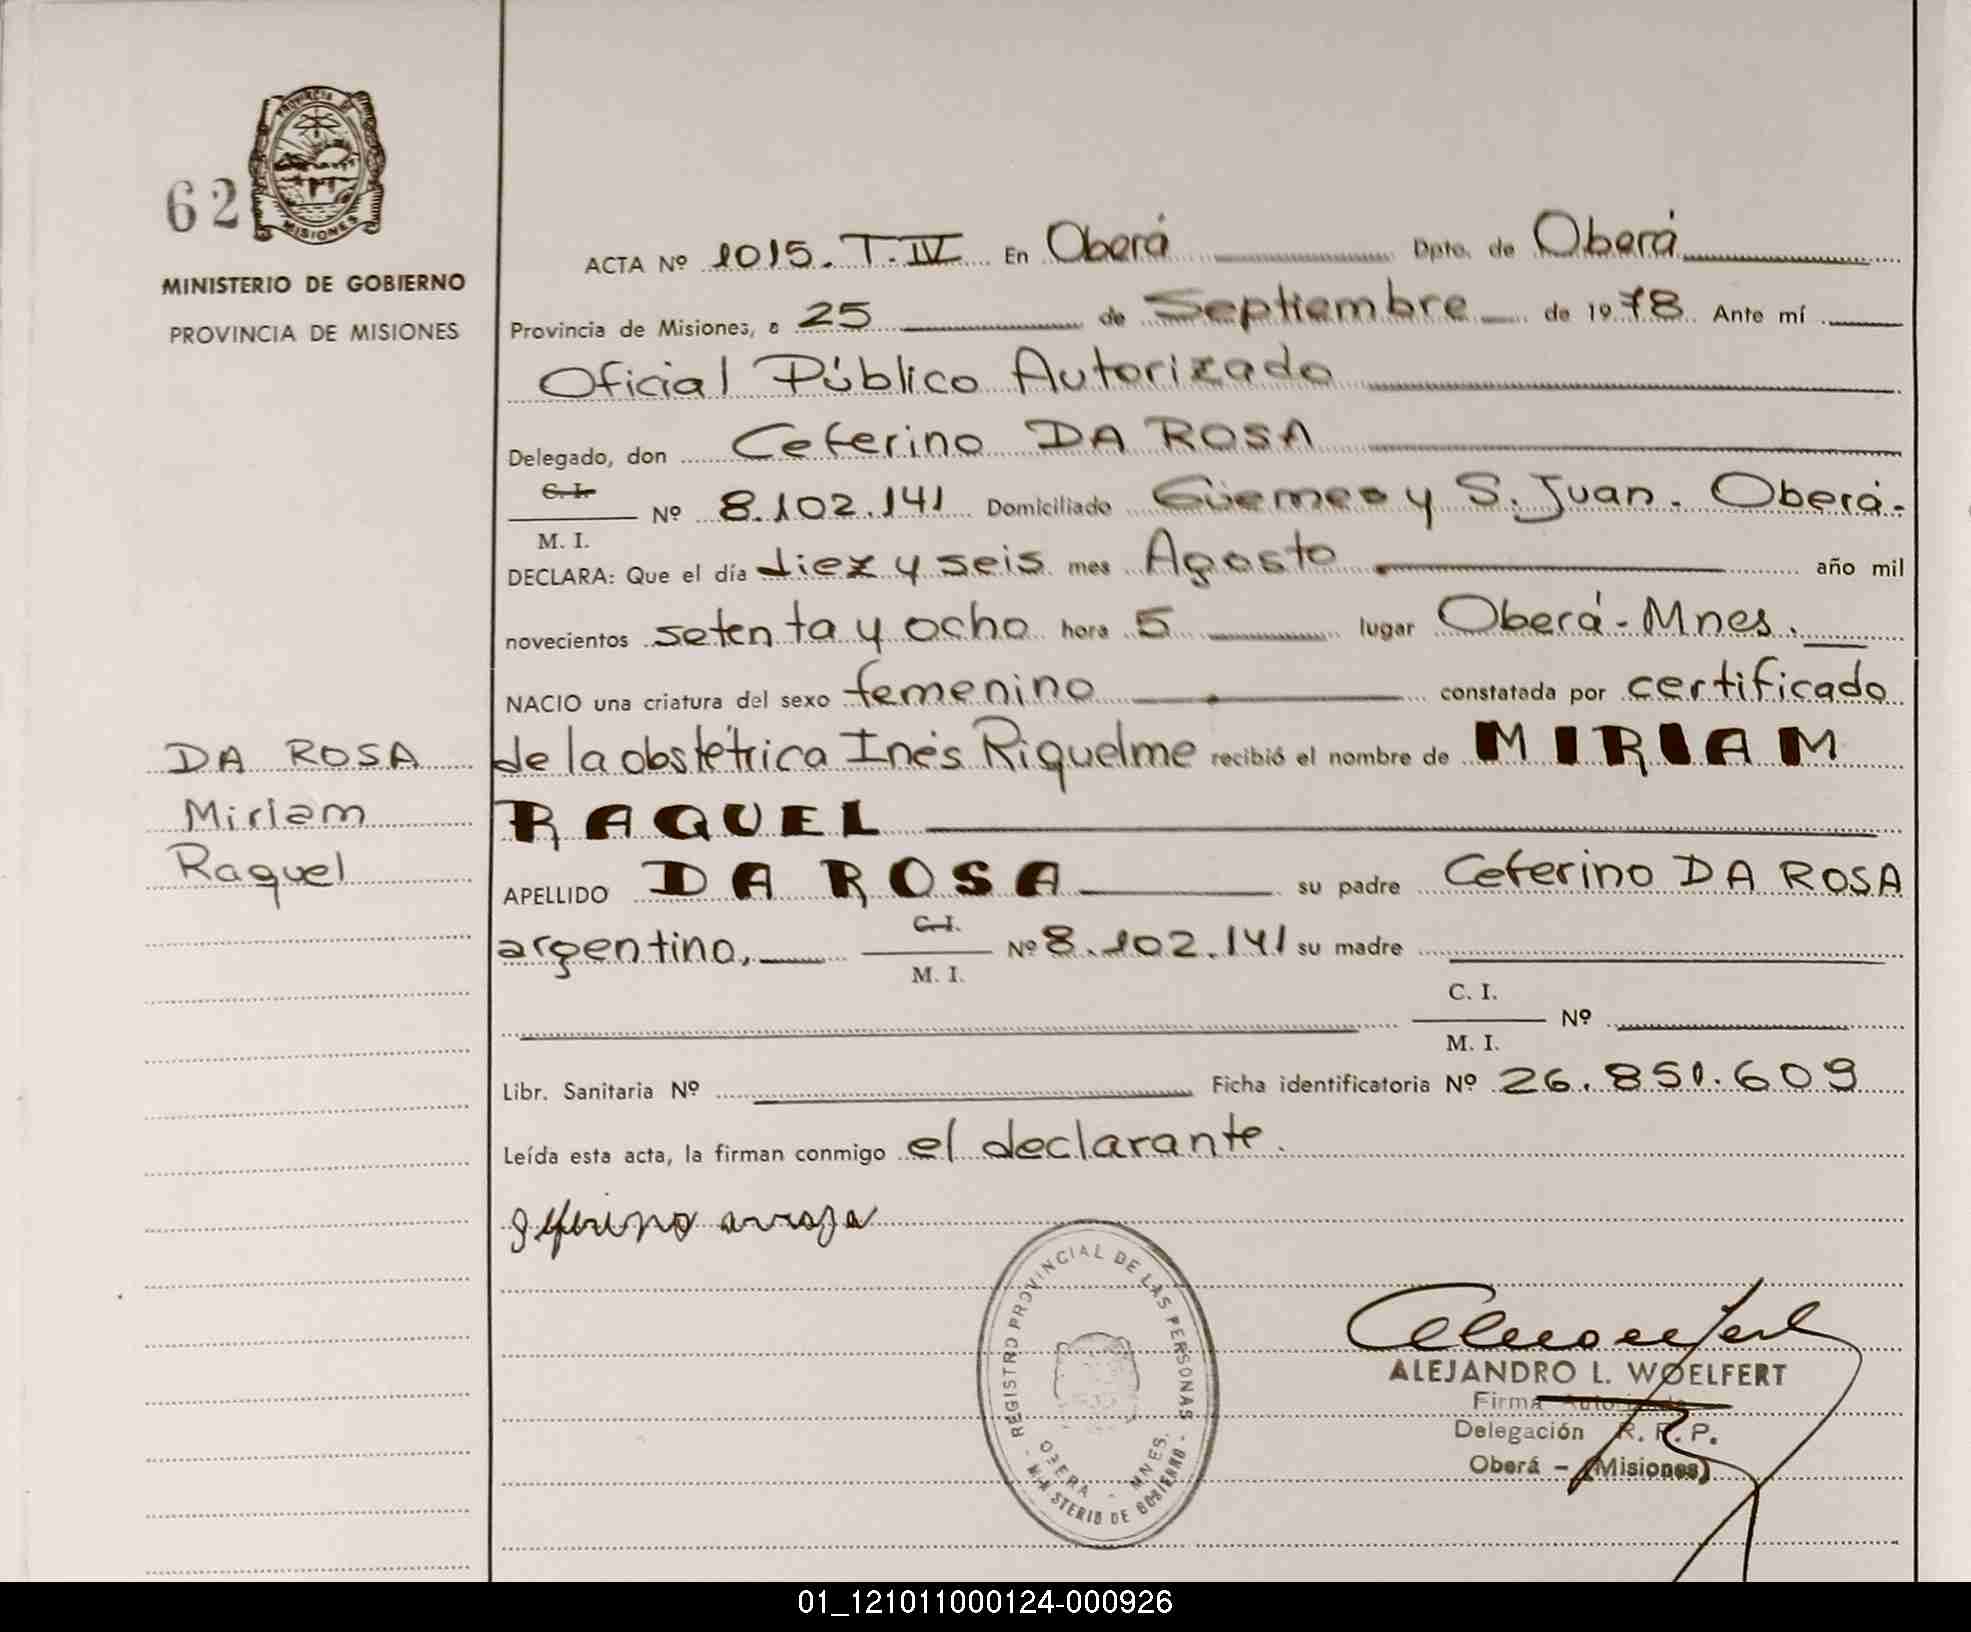 62
PROVINCIA DE
MISIONES
MINISTERIO DE GOBIERNO
PROVINCIA DE MISIONES
ACTA Nº 1015. T. IV En Oberá Dpto. de Oberá
Provincia de Misiones, a 25 de Septiembre de 1978 Ante mí
Oficial Público Autorizado
Delegado, don Ceferino DA ROSA
C. I.
M. I.
Nº 8.102.141 Domiciliado Güemes y S. Juan. Oberá.
DECLARA: Que el día diez y seis mes Agosto año mil
novecientos setenta y ocho hora 5 lugar Oberá - Mnes.
NACIO una criatura del sexo femenino constatada por certificado
de la obstétrica Inés Riquelme recibió el nombre de MIRIAM
RAQUEL
DA ROSA
Miriam
Raquel
APELLIDO DA ROSA su padre Ceferino DA ROSA
argentino, C. I. M. I. Nº 8.102.141 su madre
C. I.
M. I.
Nº
Libr. Sanitaria Nº Ficha identificatoria Nº 26.851.609
Leída esta acta, la firman conmigo el declarante.
REGISTRO PROVINCIAL DE LAS PERSONAS
OBERA - MNES.
- MINISTERIO DE GOBIERNO -
ALEJANDRO L. WOELFERT
Firma Autorizada
Delegación R. P. P.
Oberá - (Misiones)
01_121011000124-000926